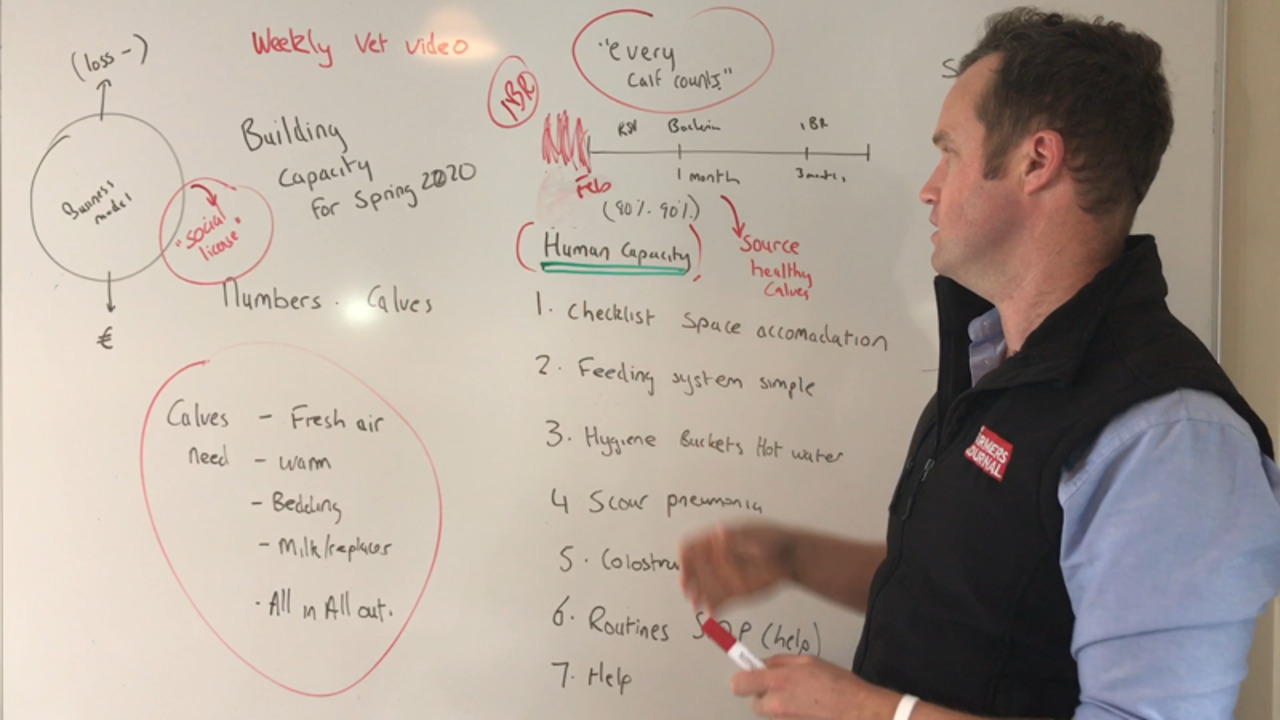 (loss -)
Business
model
"social
license"
€
Weekly Vet video
Building
Capacity
for Spring 2020
Numbers. Calves
Calves - Fresh air
need - warm
- Bedding
- Milk/replacer
. All in All out.
"every
calf counts."
RSV
IBR
Feb
1 month
(80%. 90%)
(Human Capacity)
Source
healthy
Calves
1. Checklist Space accomadation
2. Feeding system simple
3. Hygiene Buckets Hot water
4 Scour pneumonia
5. Colostru
6. Routines SOP (help)
7. Help
S
ARMERS
JOURNAL